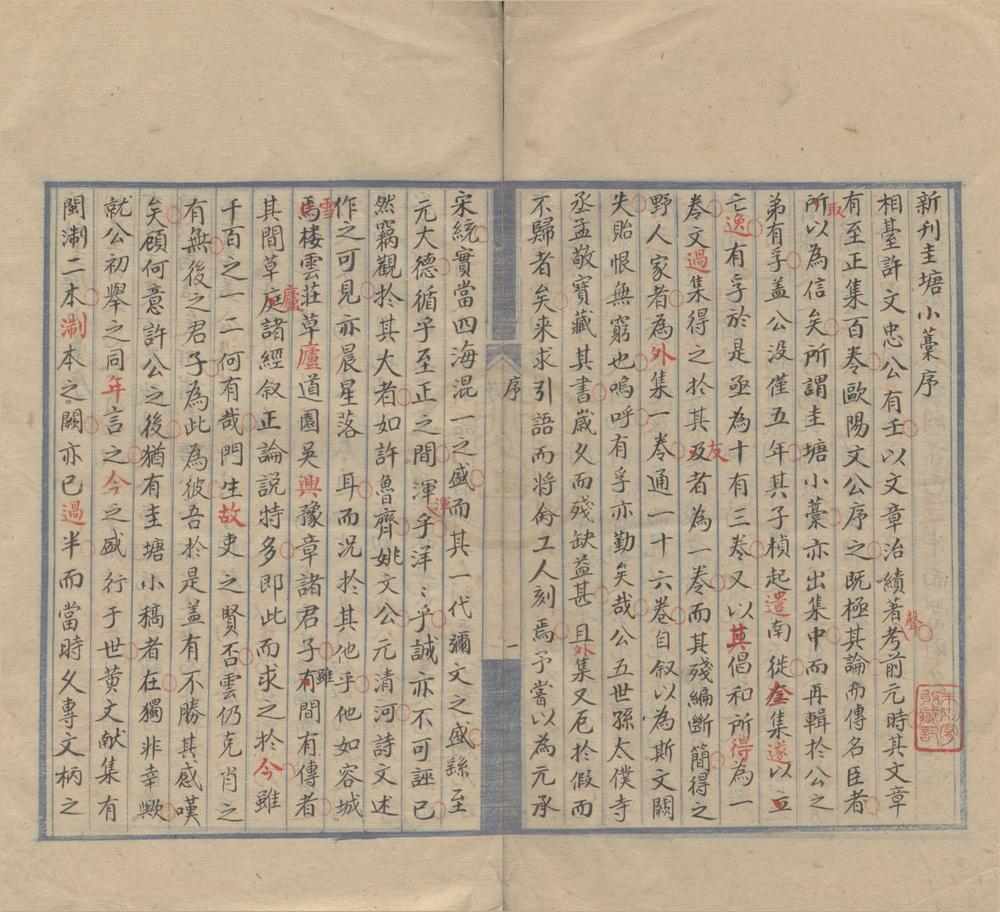 新刊圭塘小藁序
相臺許文忠公有壬以文章治績著聲考前元時其文章
有至正集百卷歐陽文公序之既極其論而傳名臣者
所取以為信矣所謂圭塘小藁亦出集中而再輯於公之
弟有孚盖公没僅五年其子楨起遣南徙全集遂以立
亡逸有孚於是亟為十有三卷又以其倡和所得為一
卷文過集得之於其及友者為一卷而其殘編斷簡得之
野人家者為外集一卷通一十六卷自叙以為斯文闕
失貽恨無窮也嗚呼有孚亦勤矣哉公五世孫太僕寺
丞孟敬寶藏其書歲久而殘缺益甚且外集又厄於假而
不歸者矣来求引語而将侖工人刻焉予嘗以為元承
序
一
宋統實當四海混一之盛而其一代彌文之盛繇至
元大德循乎至正之間渾渾乎洋〻乎誠亦不可誣已
然竊觀於其大者如許魯齊姚文公元清河詩文述
作之可見亦晨星落耳而况於其他乎他如容城
馬雪楼雲莊草廬道園吳興豫章諸君子有雖間有傳者
其間草庭廬諸經叙正論説特多即此而求之於今雖
千百之一二何有哉門生故吏之賢否雲仍克肖之
有無後之君子為此為彼吾於是盖有不勝其感嘆
矣頋何意許公之後猶有圭塘小稿者在獨非幸歟
就公初舉之同年言之今之盛行于世黄文献集有
閩淛二本淛本之闕亦已過半而當時久專文柄之